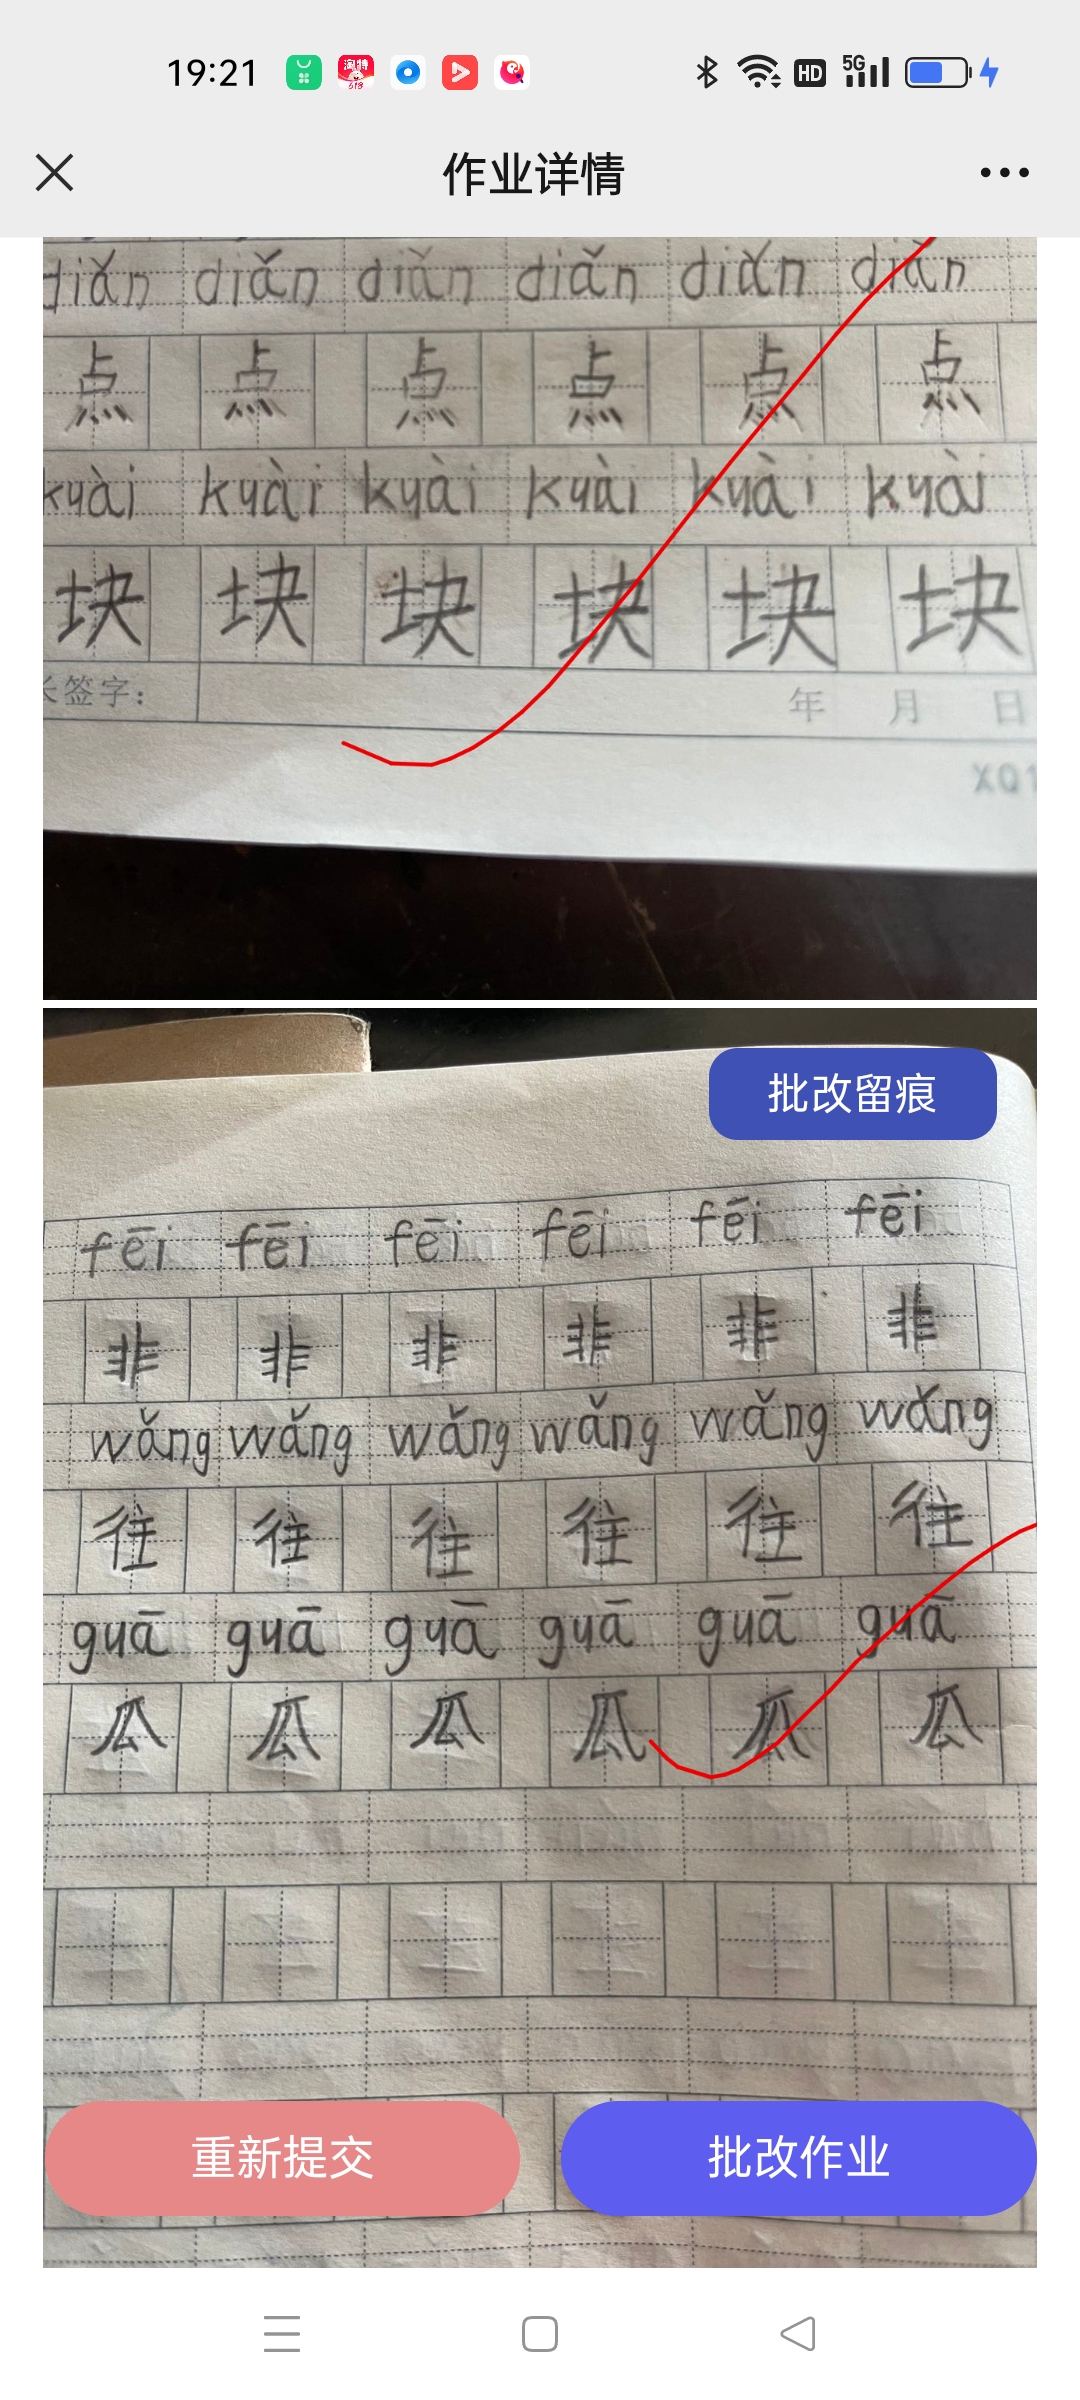 19:21 淘特 618 HD 5G
作业详情
diǎn diǎn diǎn diǎn diǎn diǎn
点 点 点 点 点 点
kuài kuài kuài kuài kuài kuài
块 块 块 块 块 块
签字：
年 月 日
XQ1
批改留痕
fēi fēi fēi fēi fēi fēi
非 非 非 非 非 非
wǎng wǎng wǎng wǎng wǎng wǎng
往 往 往 往 往 往
guā guā guā guā guā guā
瓜 瓜 瓜 瓜 瓜 瓜
重新提交 批改作业